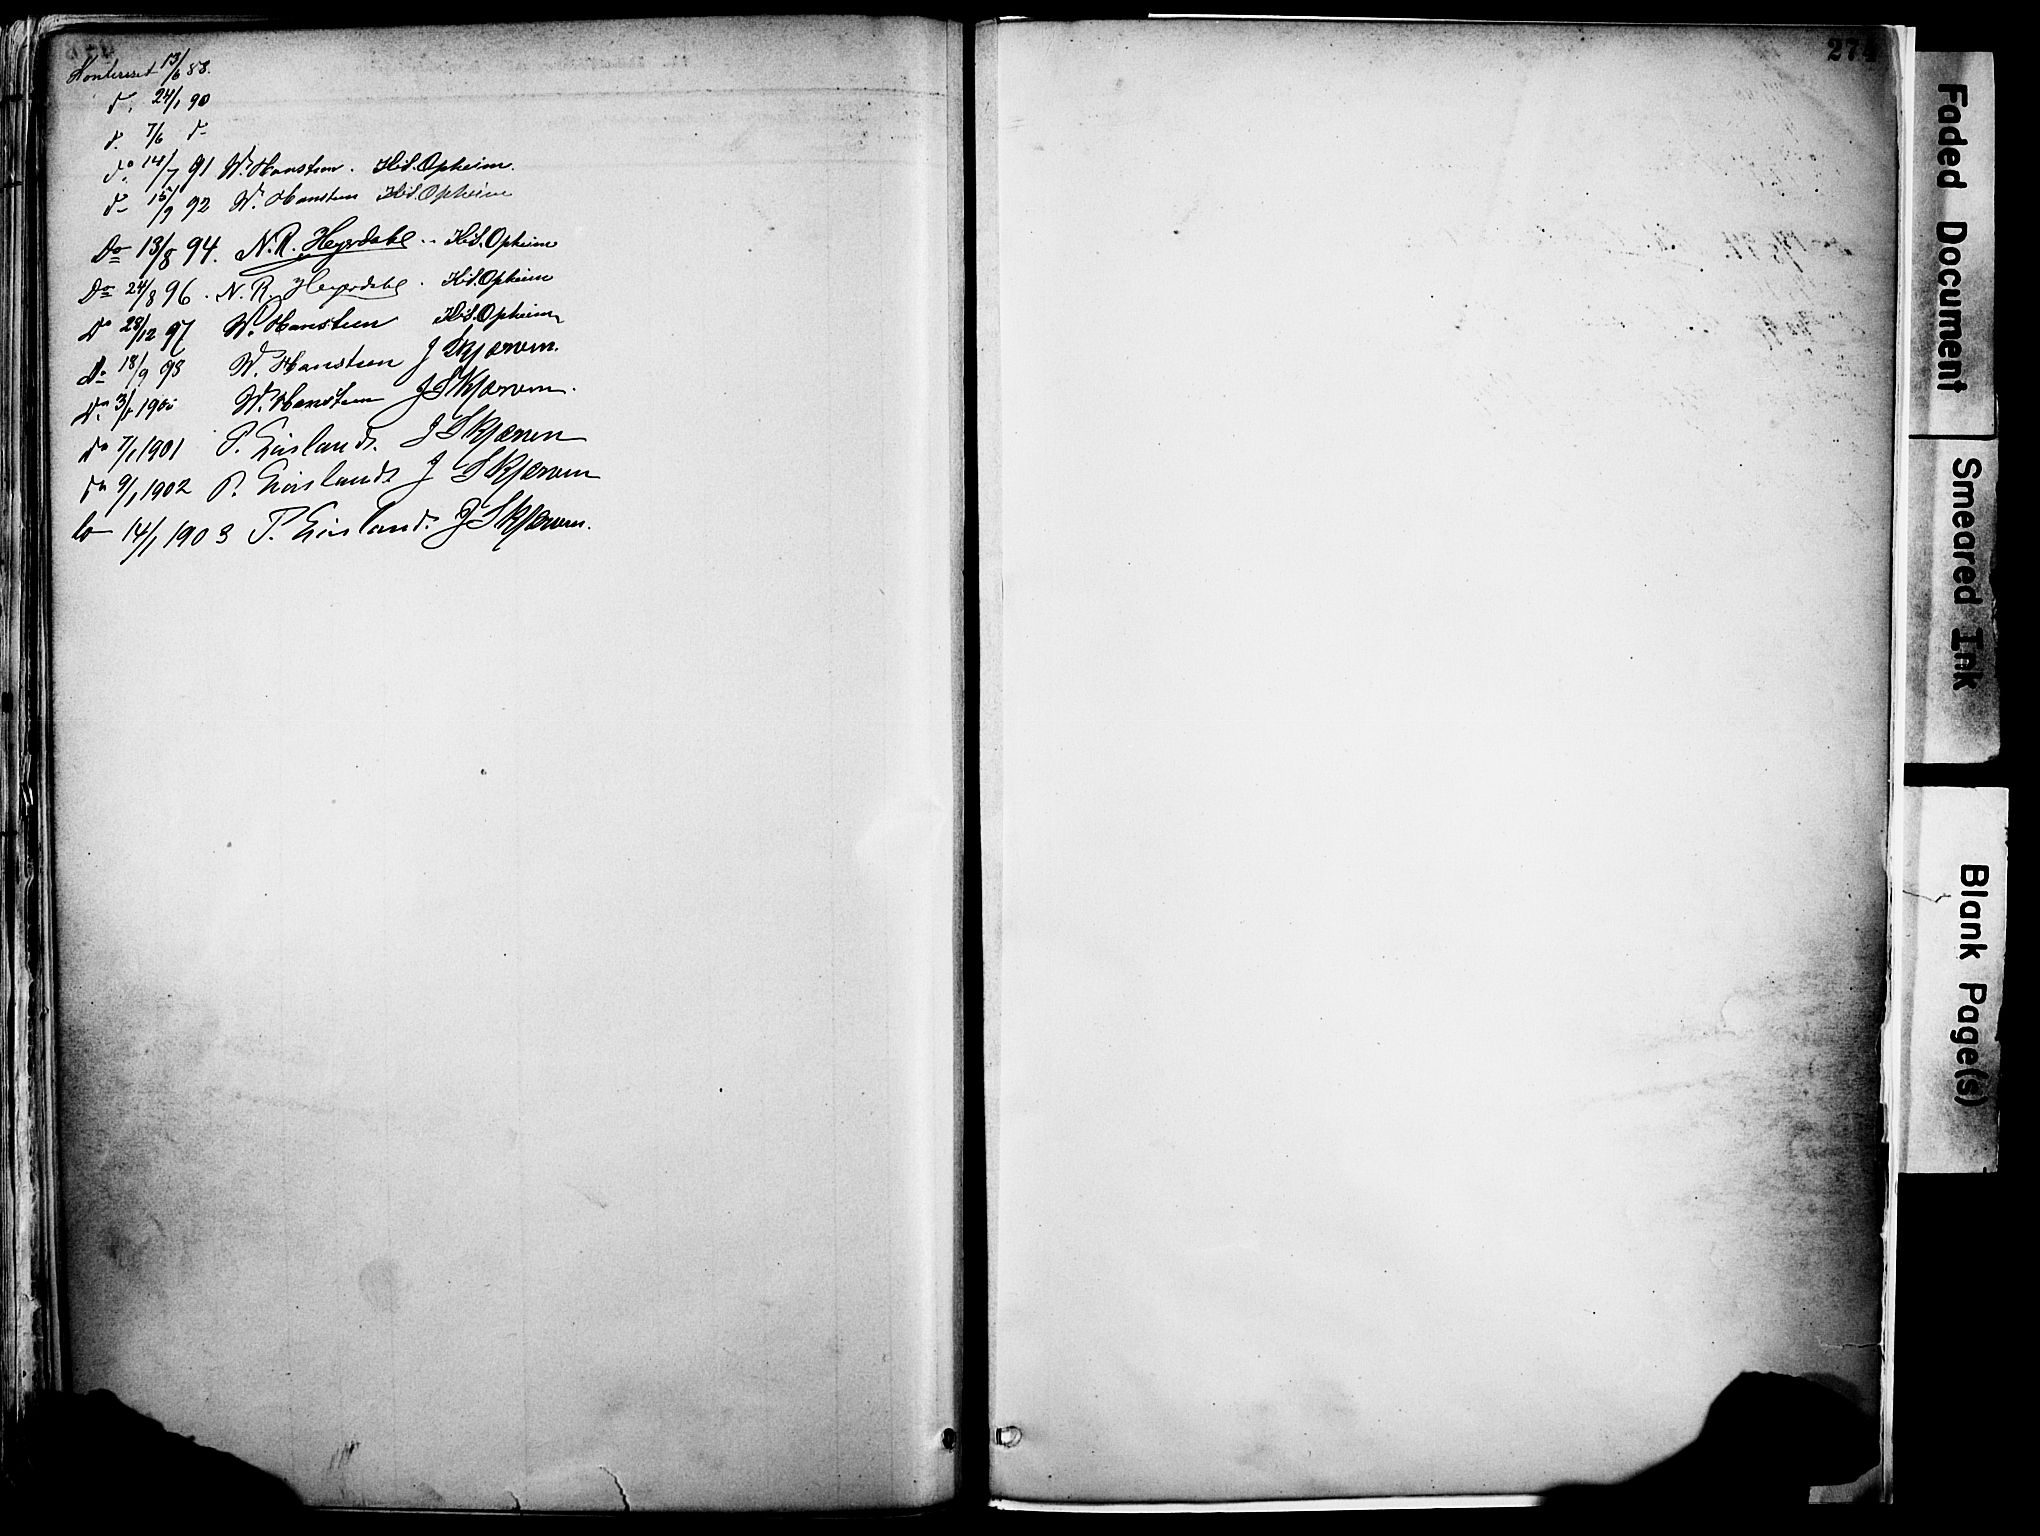 Konfereret 13/6 88.
d. 24/1 90
d. 7/6 d-
do 14/7 91 W. Hansteen. Kr.S. Opheim.
d- 15/9 92 W. Hansteen Kr.S. Opheim
Do 13/8 94. N.R. Heyerdahl. Kr.S. Opheim
Do 24/8 96. N.R. Heyerdahl. Kr.S. Opheim
Do 28/12 97 W. Hansteen Kr.S. Opheim
Do 18/9 98 W. Hansteen J Skjerven.
Do 3/1 1900 W. Hansteen J Skjerven.
do 7/1 1901 P. Girsland. J Skjerven
do 9/1 1902 P. Girsland J Skjerven
do 14/1 1903 P. Girsland. J Skjerven.
274
Faded Document
Smeared Ink
Blank Page(s)